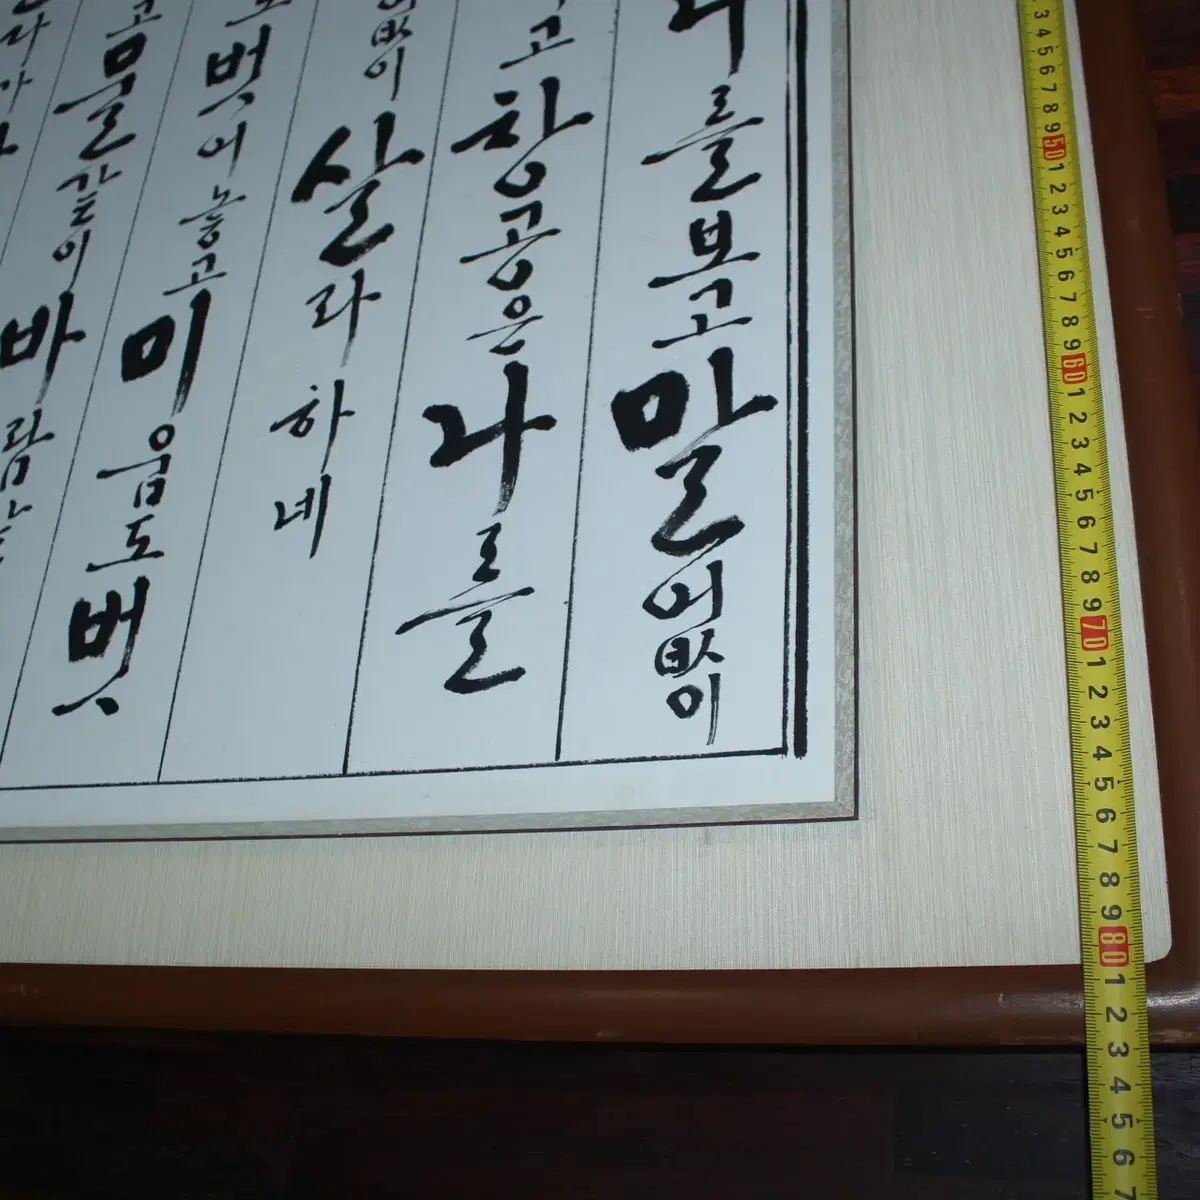 를보고말없이
고창공은나를
없이살라하네
도벗어놓고미움도벗
고물같이바람
3 4 5 6 7 8 9 50 1 2 3 4 5 6 7 8 9 60 1 2 3 4 5 6 7 8 9 70 1 2 3 4 5 6 7 8 9 80 1 2 3 4 5 6 7